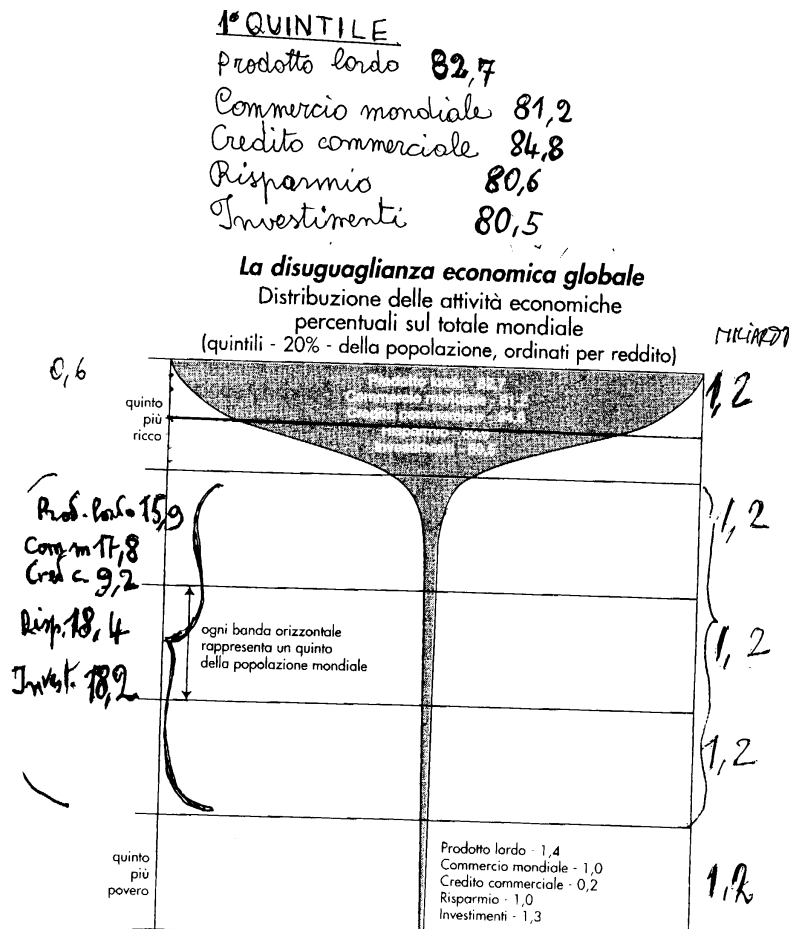 1° QUINTILE
Prodotto lordo 82,7
Commercio mondiale 81,2
Credito commerciale 84,8
Risparmio 80,6
Investimenti 80,5
La disuguaglianza economica globale
Distribuzione delle attività economiche
percentuali sul totale mondiale
(quintili - 20% - della popolazione, ordinati per reddito)
MILIARDI
0,6
Prodotto lordo - 82,7
Commercio mondiale - 81,2
Credito commerciale - 84,8
Investimenti - 80,5
1,2
quinto
più
ricco
Prod. lordo 15,9
Com m 17,8
Cred c 9,2
Risp. 18,4
Invest. 18,2
1,2
ogni banda orizzontale
rappresenta un quinto
della popolazione mondiale
1,2
1,2
quinto
più
povero
Prodotto lordo - 1,4
Commercio mondiale - 1,0
Credito commerciale - 0,2
Risparmio - 1,0
Investimenti - 1,3
1,2